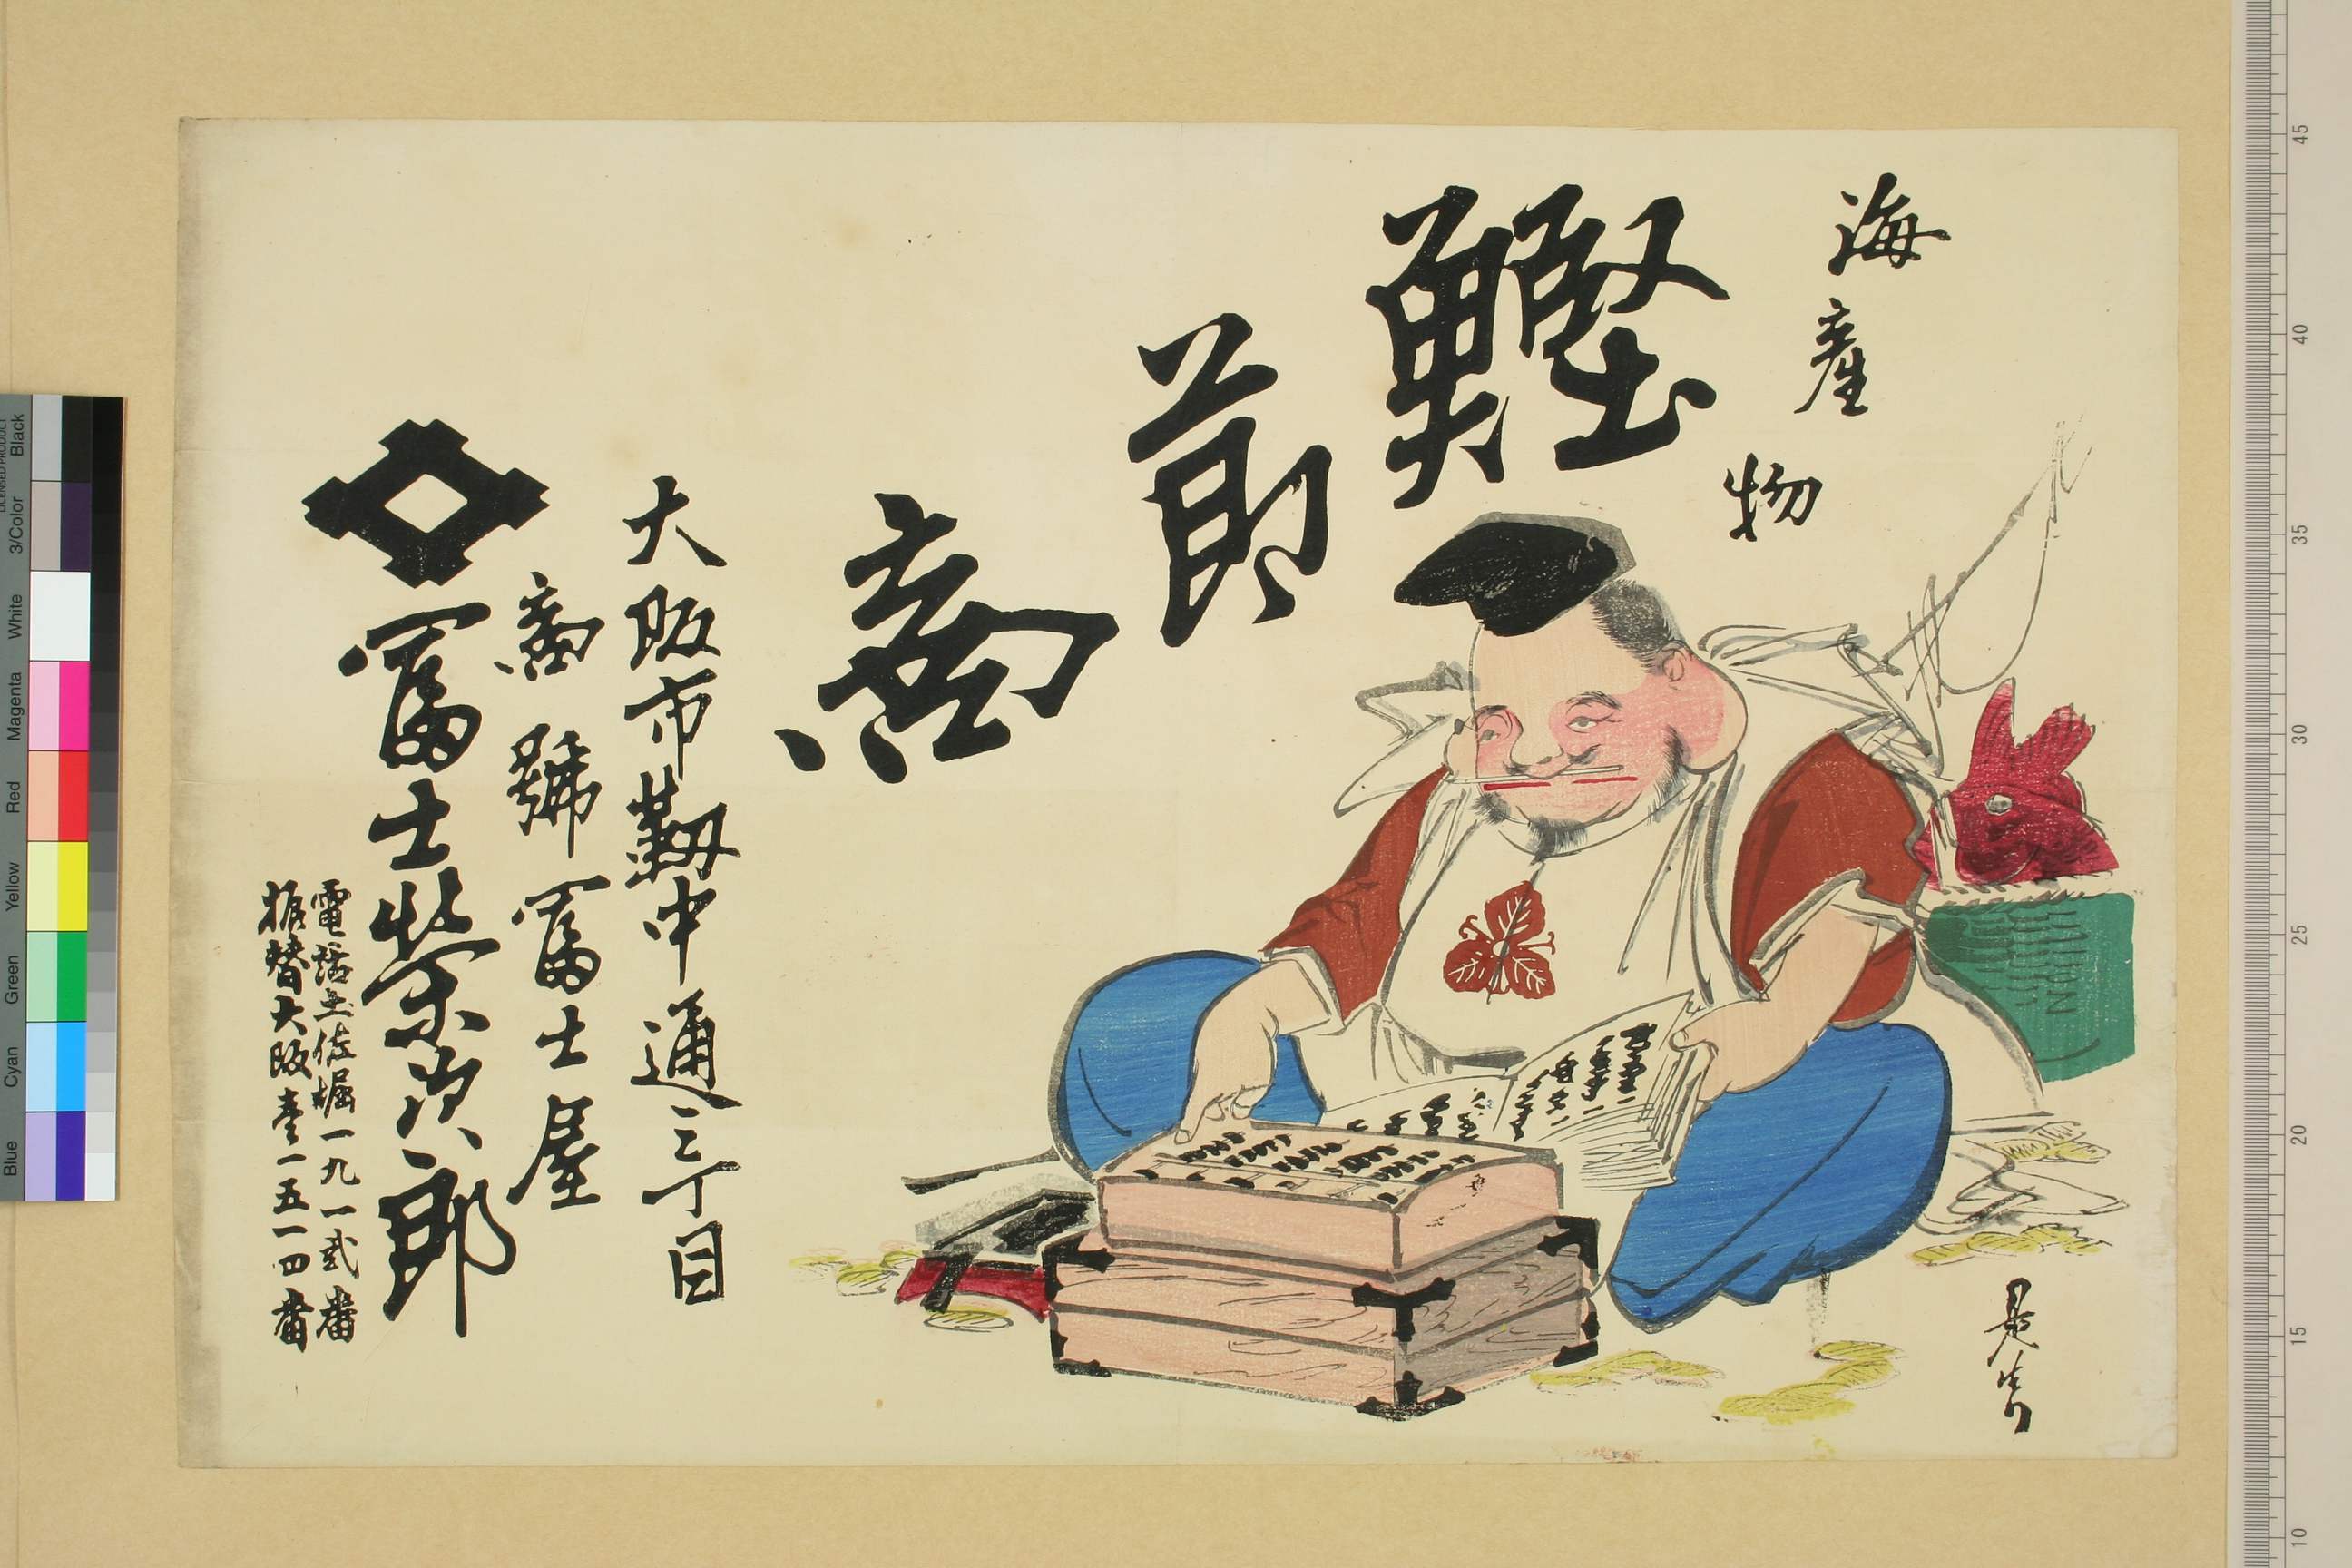 海産物
鰹節商
大阪市靱中通二丁目
商號 冨士屋
冨士栄次郎
電話土佐堀一九一貳番
振替大阪壹一五一四番
45
40
35
30
25
20
15
10
Black
3/Color
White
Magenta
Red
Yellow
Green
Cyan
Blue
LICENSED PRODUCT